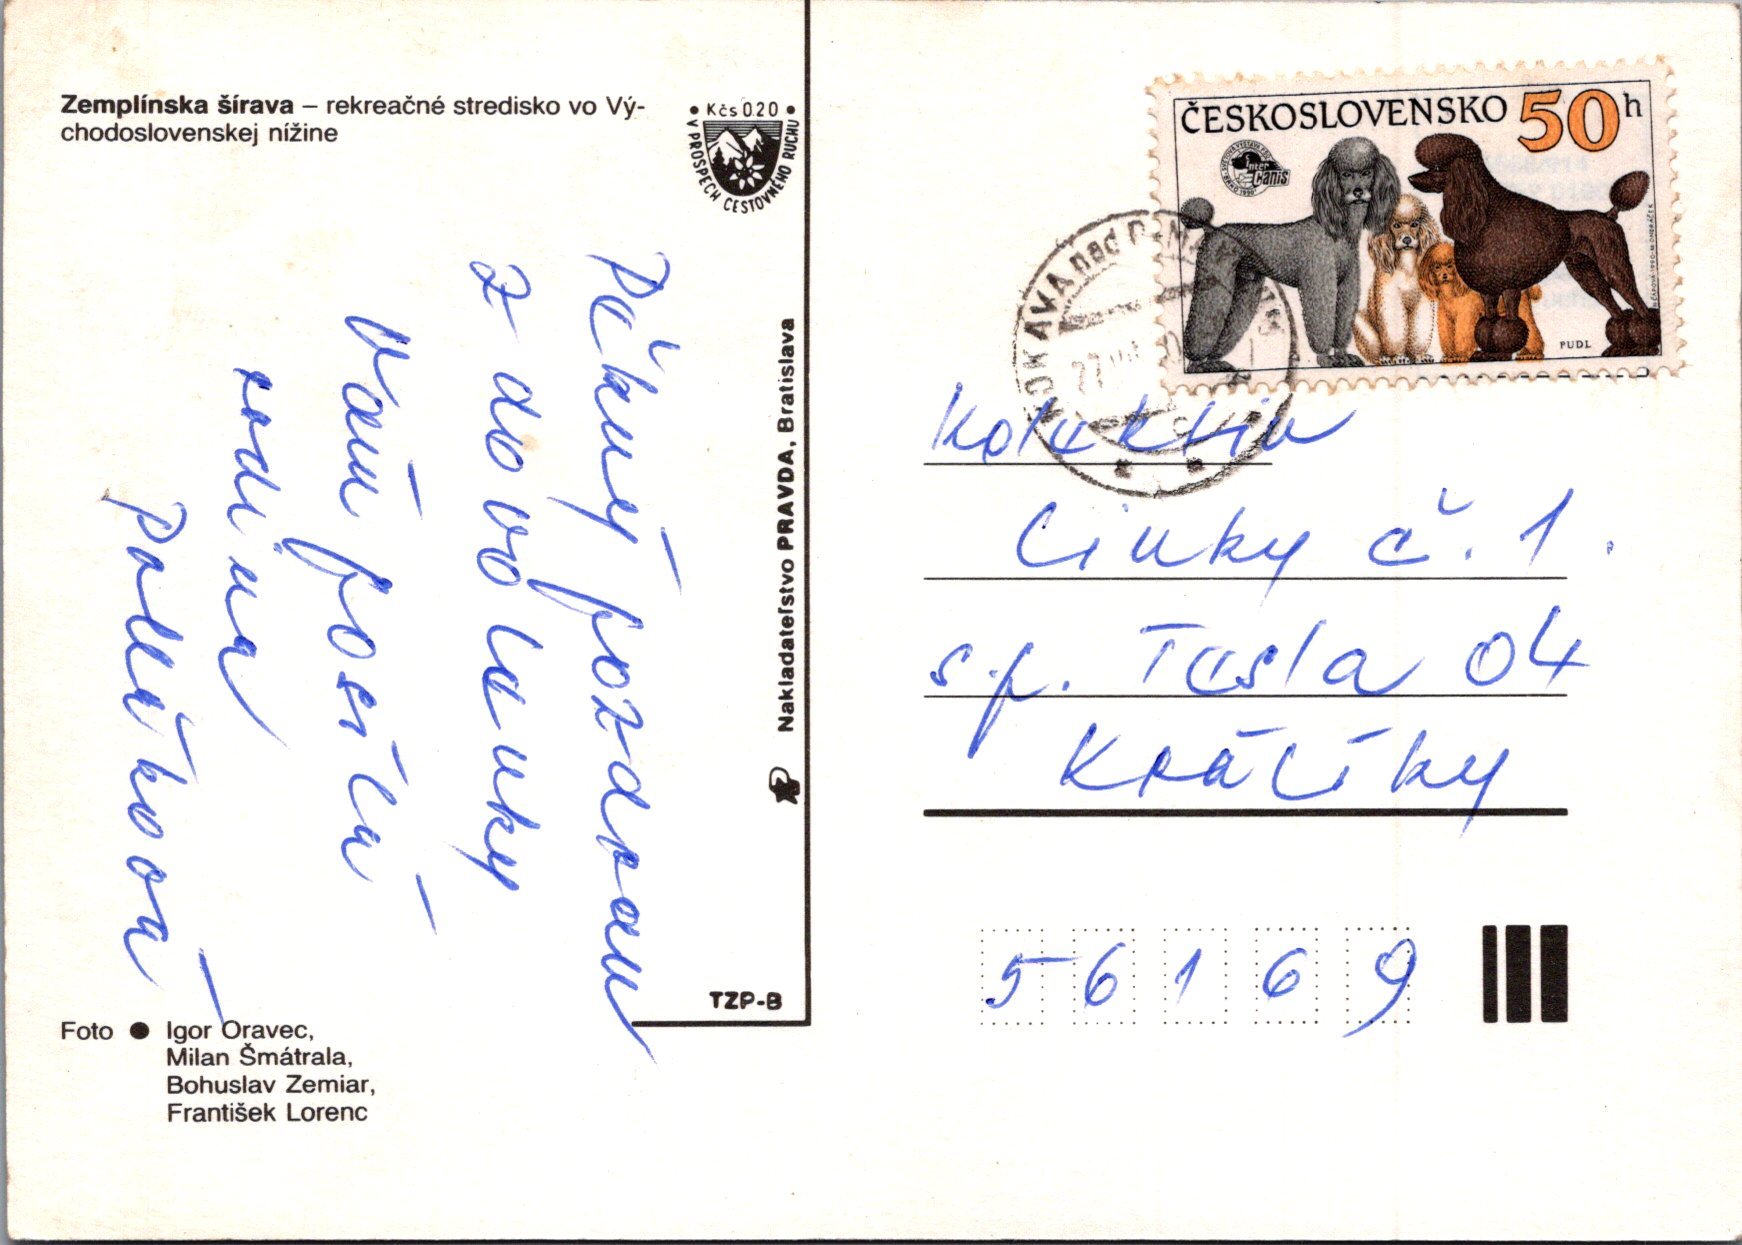 Zemplínska šírava – rekreačné stredisko vo Vý-
chodoslovenskej nížine
• Kčs 0.20 •
V PROSPECH CESTOVNÉHO RUCHU
Pěkný pozdrav
z dovolenky
Vám posílá
rodina
Polláková
Nakladateľstvo PRAVDA, Bratislava
TZP-B
Foto ● Igor Oravec,
Milan Šmátrala,
Bohuslav Zemiar,
František Lorenc
ČESKOSLOVENSKO 50h
inter canis
PUDL
KOKAVA nad
27. VII.
Kolektiv
Cinky č. 1.
s.p. Tesla 04
Králíky
56169